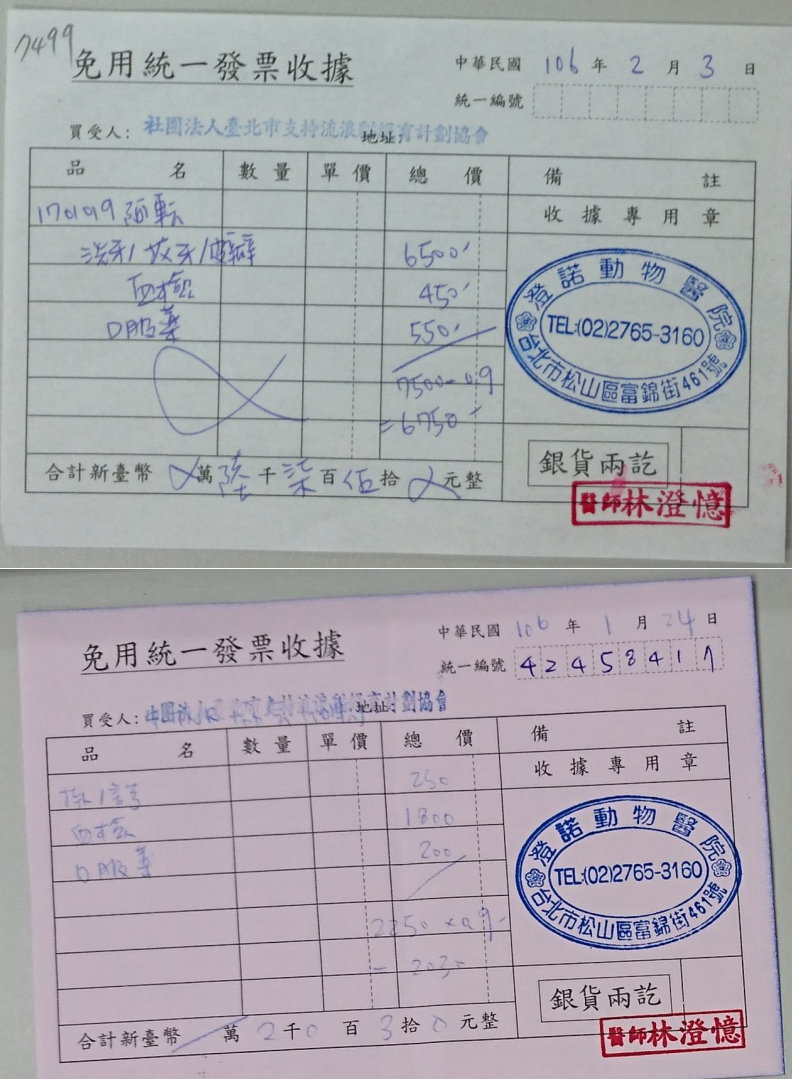 7499
免用統一發票收據
中華民國 106 年 2 月 3 日
統一編號
買受人: 社團法人臺北市支持流浪 育計劃協會
地址:
品名 數量 單價 總價 備註
收據專用章
170119
洗牙/拔牙/ 6500
血檢 450
口服藥 550
7500 0.9
=6750
澄諾動物醫院
TEL:(02)2765-3160
台北市松山區富錦街461號
銀貨兩訖
合計新臺幣 萬 陸 千 柒 百 伍 拾 元整
醫師林澄憶
免用統一發票收據
中華民國 106 年 1 月 24 日
統一編號 42458417
買受人: 計劃協會
地址:
品名 數量 單價 總價 備註
收據專用章
250
血檢 1800
口服藥 200
2250 x 0.9
= 2030
澄諾動物醫院
TEL:(02)2765-3160
台北市松山區富錦街461號
銀貨兩訖
合計新臺幣 萬 2 千 0 百 3 拾 0 元整
醫師林澄憶